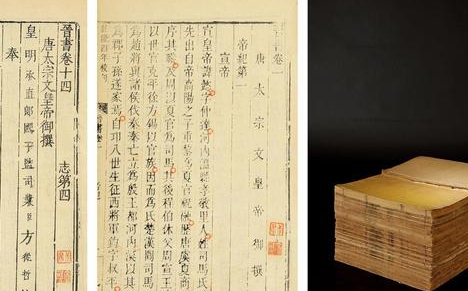 晉書卷十四 志第四
唐太宗文皇帝御撰
皇明承直郎國子監司業臣方從哲
奉
晉書卷一
唐太宗文皇帝御撰
帝紀第一
宣帝
宣皇帝諱懿字仲達河內溫縣孝敬里人姓司馬氏
先出自帝高陽之子重黎為夏官祝融歷唐虞夏商
序其職及周以夏官為司馬其後程伯休父周宣王
以世官克平徐方錫以官族因而為氏楚漢間司馬
為趙將與諸侯伐秦秦亡立為殷王都河內漢以其
為郡子孫遂家焉自卬八世生征西將軍鈞字叔平